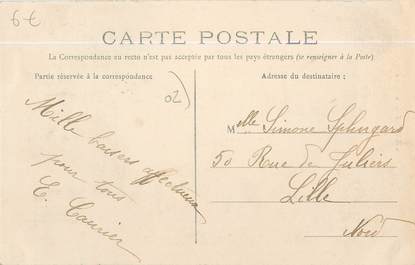 6€
CARTE POSTALE
La Correspondance au recto n'est pas acceptée par tous les pays étrangers (se renseigner à la Poste)
Partie réservée à la correspondance
Adresse du destinataire :
02
Mille baisers affectueux
pour tous
E. Caurier
Melle Simone
50 Rue de Juliers
Lille
Nord